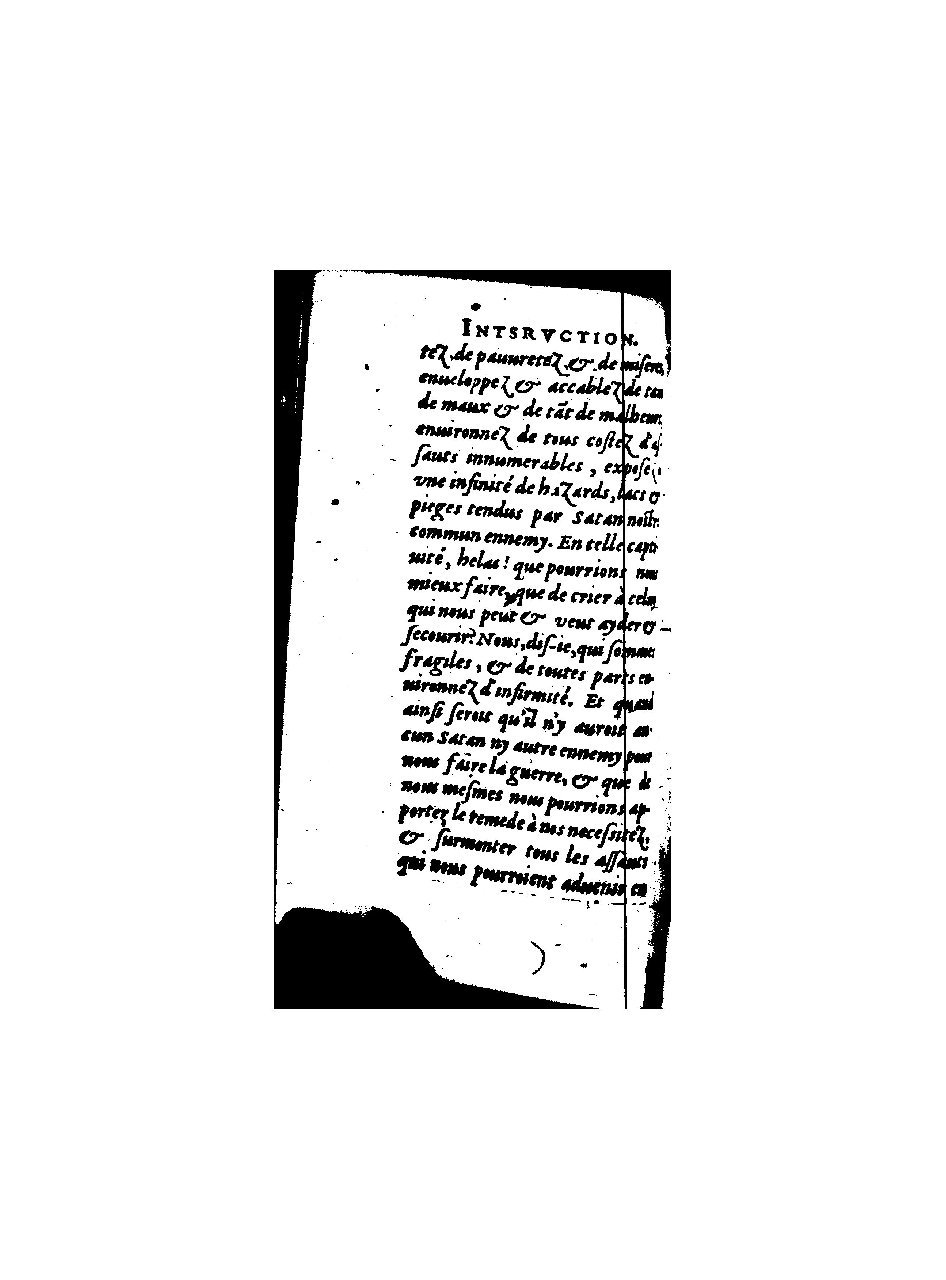 INTSRVCTION.
tez de pauuretez & de misere,
enueloppez & accablez de tan
de maux & de tãt de malheurs
enuironnez de tous costez d'as
sauts innumerables, expose
vne infinité de hazards, lacs &
pieges tendus par Satan nostr
commun ennemy. En telle capti
uité, helas! que pourrions nous
mieux faire, que de crier à celuy
qui nous peut & veut ayder &
secourir? Nous, dis-ie, qui sommes
fragiles, & de toutes parts en
uironnez d'infirmité. Et quand
ainsi seroit qu'il n'y auroit au
cun Satan ny autre ennemy pour
nous faire la guerre, & que de
nous mesmes nous pourrions ap-
porter le remede à nos necessitez,
& surmonter tous les assauts
qui nous pourroient aduenir en